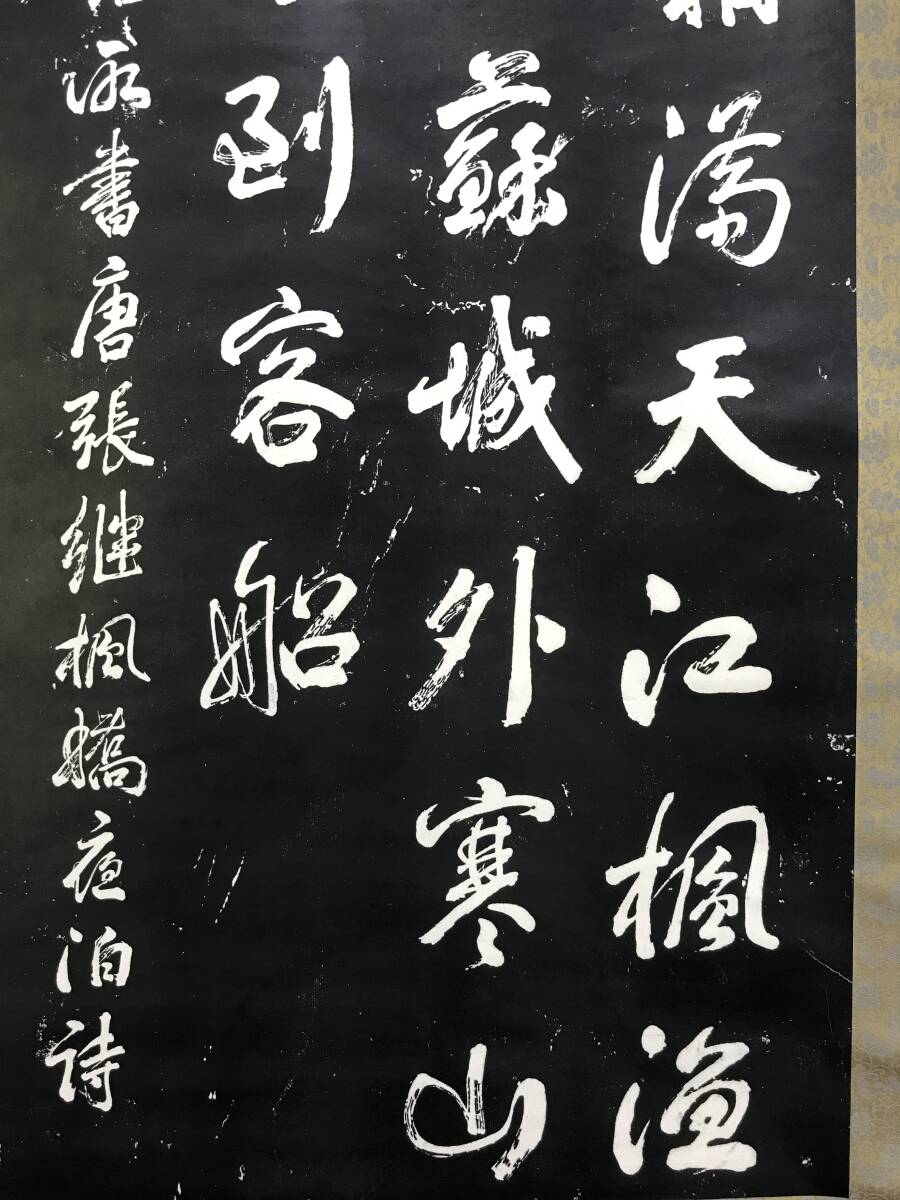 滿天江楓漁
蘇城外寒山
到客船
泳書唐張继楓橋夜泊詩